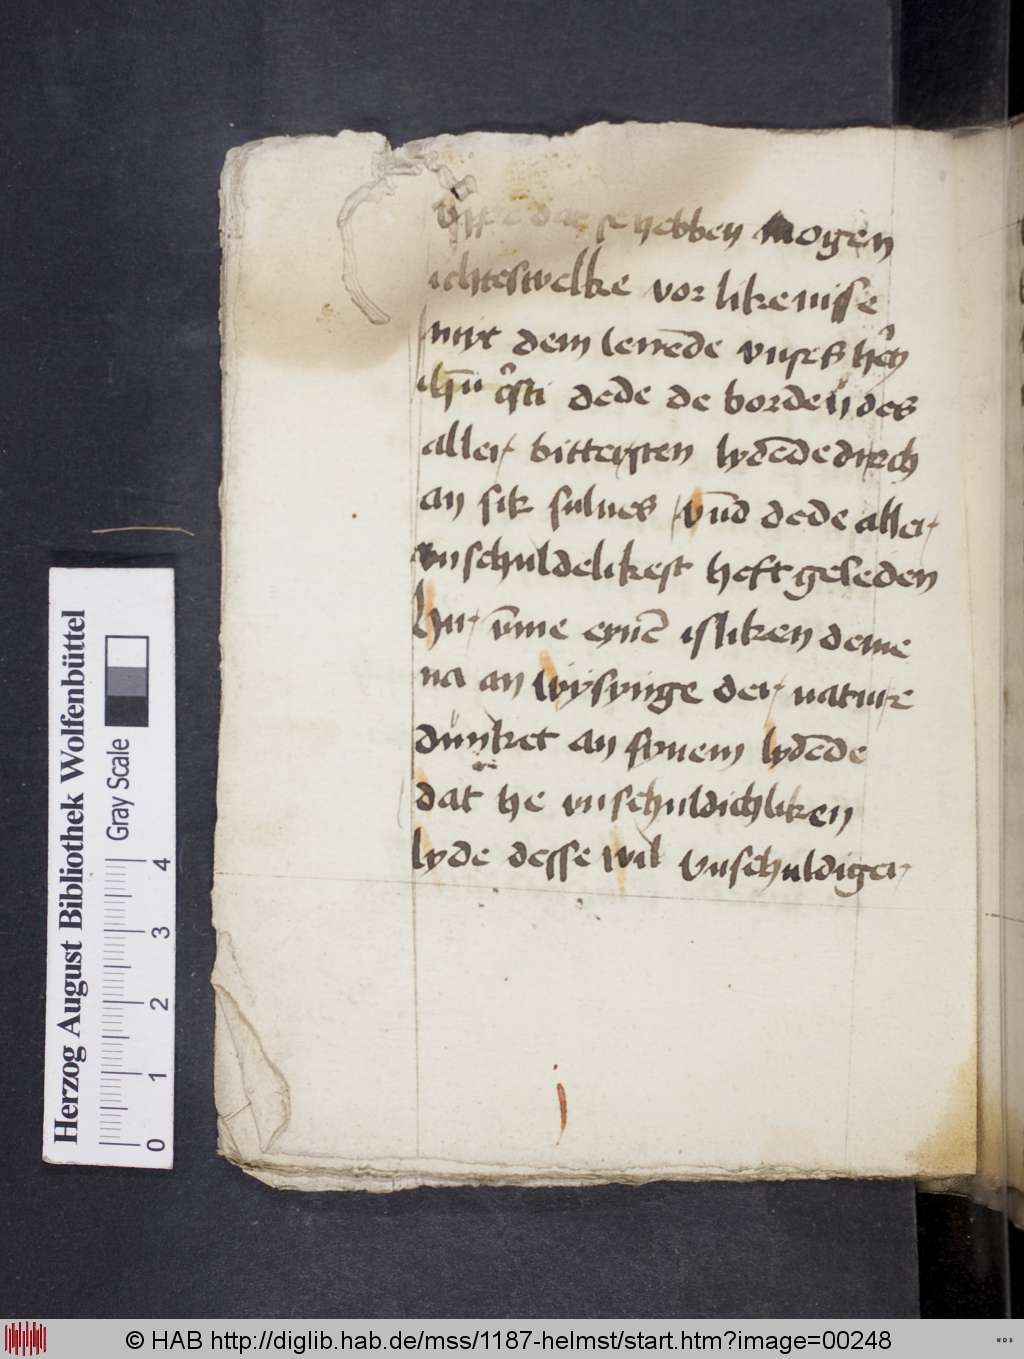 dat se hebben mogen
ichteswelke vor likenisse
myt dem lenede vnses hn̄
ihū xp̄sti dede de borden des
aller bittersten lydēde drech
an sik sulues vn̄d dede aller
vnschuldelikest heft geleden
hir vm̄e eynē isliken deme
na an wysynge der nature
dunket an synem lydēde
dat he vnschuldichliken
lyde desse wil vnschuldiger
Herzog August Bibliothek Wolfenbüttel
Gray Scale
0 1 2 3 4
© HAB http://diglib.hab.de/mss/1187-helmst/start.htm?image=00248